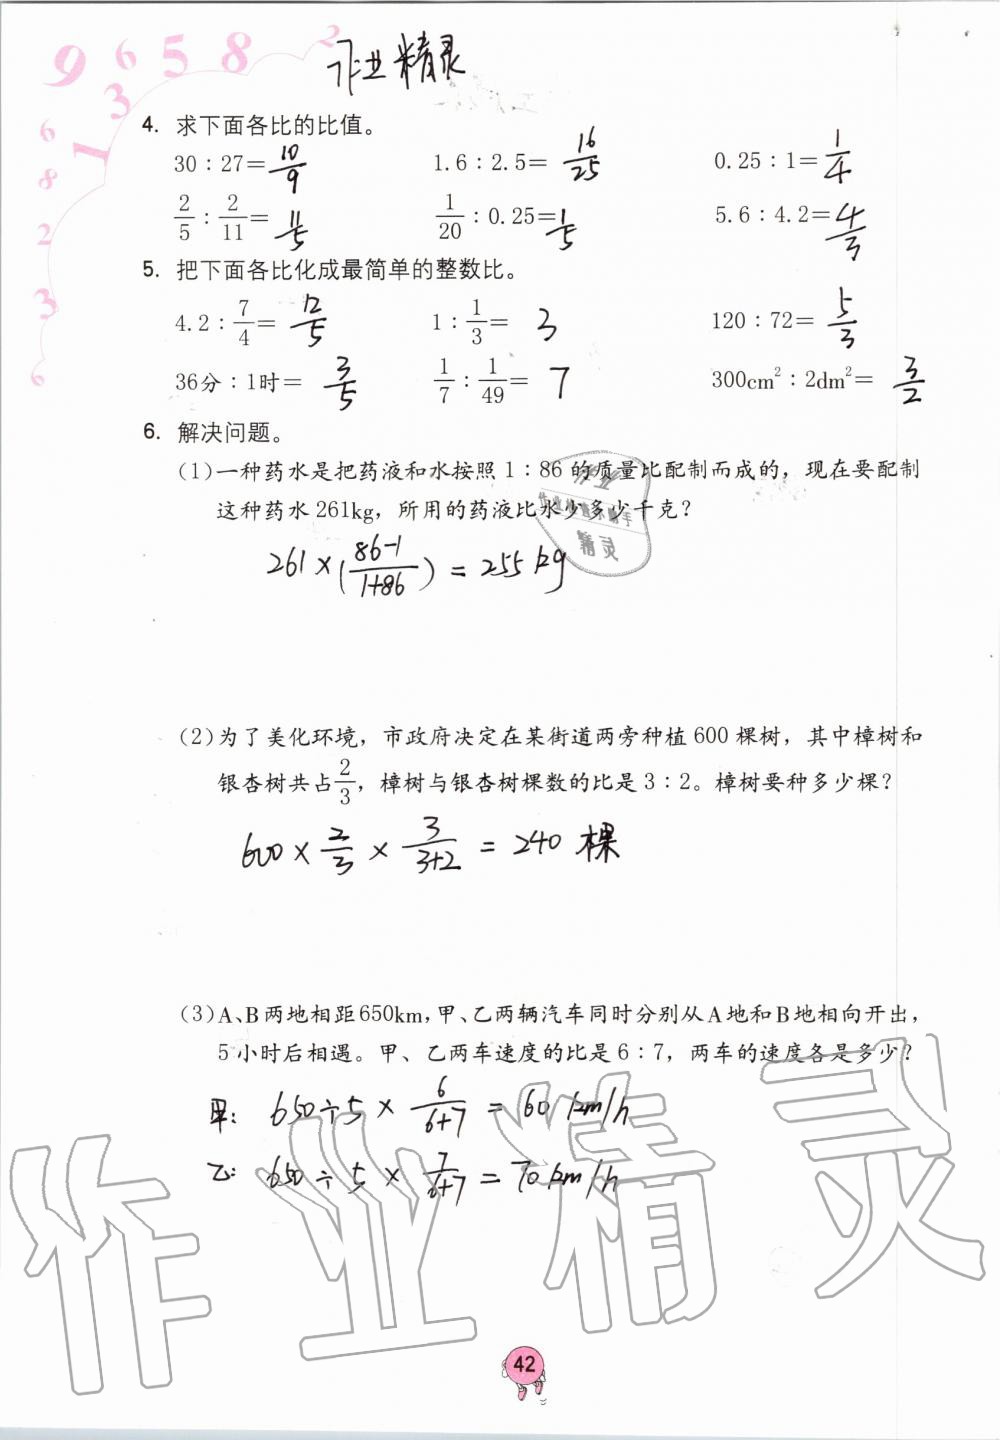 9 6 5 8 2
3
1
6
8
2
3
6
作业精灵
4. 求下面各比的比值。
30：27＝10/9　1.6：2.5＝16/25　0.25：1＝1/4
2/5：2/11＝11/5　1/20：0.25＝1/5　5.6：4.2＝4/3
5. 把下面各比化成最简单的整数比。
4.2：7/4＝12/5　1：1/3＝3　120：72＝5/3
36分：1时＝3/5　1/7：1/49＝7　300cm²：2dm²＝3/2
6. 解决问题。
(1)一种药水是把药液和水按照1：86的质量比配制而成的，现在要配制
这种药水261kg，所用的药液比水少多少千克？
261×((86-1)/(1+86))＝255kg
(2)为了美化环境，市政府决定在某街道两旁种植600棵树，其中樟树和
银杏树共占2/3，樟树与银杏树棵数的比是3：2。樟树要种多少棵？
600×2/3×3/(3+2)＝240棵
(3)A、B两地相距650km，甲、乙两辆汽车同时分别从A地和B地相向开出，
5小时后相遇。甲、乙两车速度的比是6：7，两车的速度各是多少？
甲：650÷5×6/(6+7)＝60km/h
乙：650÷5×7/(6+7)＝70km/h
作业精灵
42